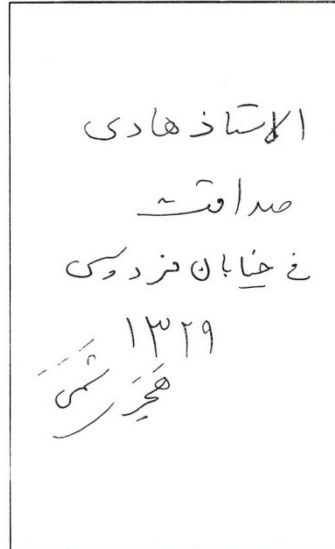 الاستاذ هادی
صداقت
في خیابان فردوسی
۱۳۲۹
هجری شمسی